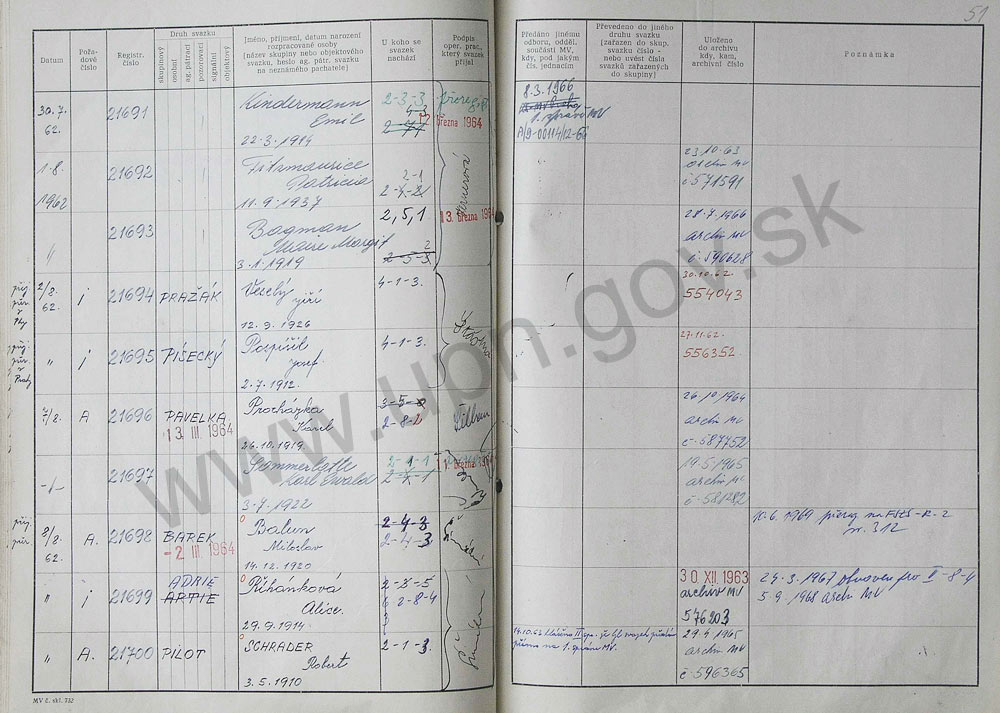 51
Datum
Pořadové číslo
Registr. číslo
Druh svazku
skupinový
osobní
ag.pátrací
pozorovací
signální
objektový
Jméno, příjmení, datum narození
rozpracované osoby
(název skupiny nebo objektového
svazku, heslo ag. pátr. svazku
na neznámého pachatele)
U koho se
svazek
nachází
Podpis
oper. prac.,
který svazek
přijal
Předáno jinému
odboru, odděl.
součásti MV,
kdy, pod jakým
čís. jednacím
Převedeno do jiného
druhu svazku
(zařazen do skup.
svazku číslo -
nebo uvést čísla
svazků zařazených
do skupiny)
Uloženo
do archivu
kdy, kam,
archivní číslo
Poznámka
30.7.
62.
21691
Kindermann
Emil
22.3.1914
2-3-3
4-3
března 1964
8.3.1966
1. správa MV
A/9-00114/12-66
1.8.
1962
21692
Fitzmaurice
Patricia
11.9.1937
2-1
23.10.63
archiv MV
č-571591
"
21693
Bagman
Marie Margit
3.1.1919
2,5,1
2-5-3
13. března 1964
28.7.1966
archiv MV
č-590628
2/8.
62.
j
21694
PRAŽÁK
Veselý
Jiří
12.9.1926
4-1-3.
30.10.62.
554043
"
j
21695
PÍSECKÝ
Pospíšil
Josef.
2.7.1912.
4-1-3.
27.11.62.
556352
7/8.
A
21696
PAVELKA
13 III 1964
Procházka
Karel
26.10.1919
3-5-8
2-8-1
26.10.1964
archiv MV
č-587752
-"-
21697
Karl Ewald
3.7.1922
2-1-1
března 1964
19.5.1965
archiv MV
č-581282
8/8.
62.
A.
21698
BAREK
-2 III 1964
Balun
Miloslav
14.12.1920
2-4-3
2-4-3
10.6.1969
"
j
21699
ADRIE
ARTIE
Říhánková
Alice.
29.9.1914.
2-8-5
2-8-4
30 XII 1963
archiv MV
576203
24.3.1967
5.9.1968 arch MV
"
A.
21700
PILOT
SCHRADER
Robert
3.5.1910
2-1-3.
přímo na 1. správu MV.
29.4.1965
archiv MV
č-596365
MV č. skl. 732
www.upn.gov.sk